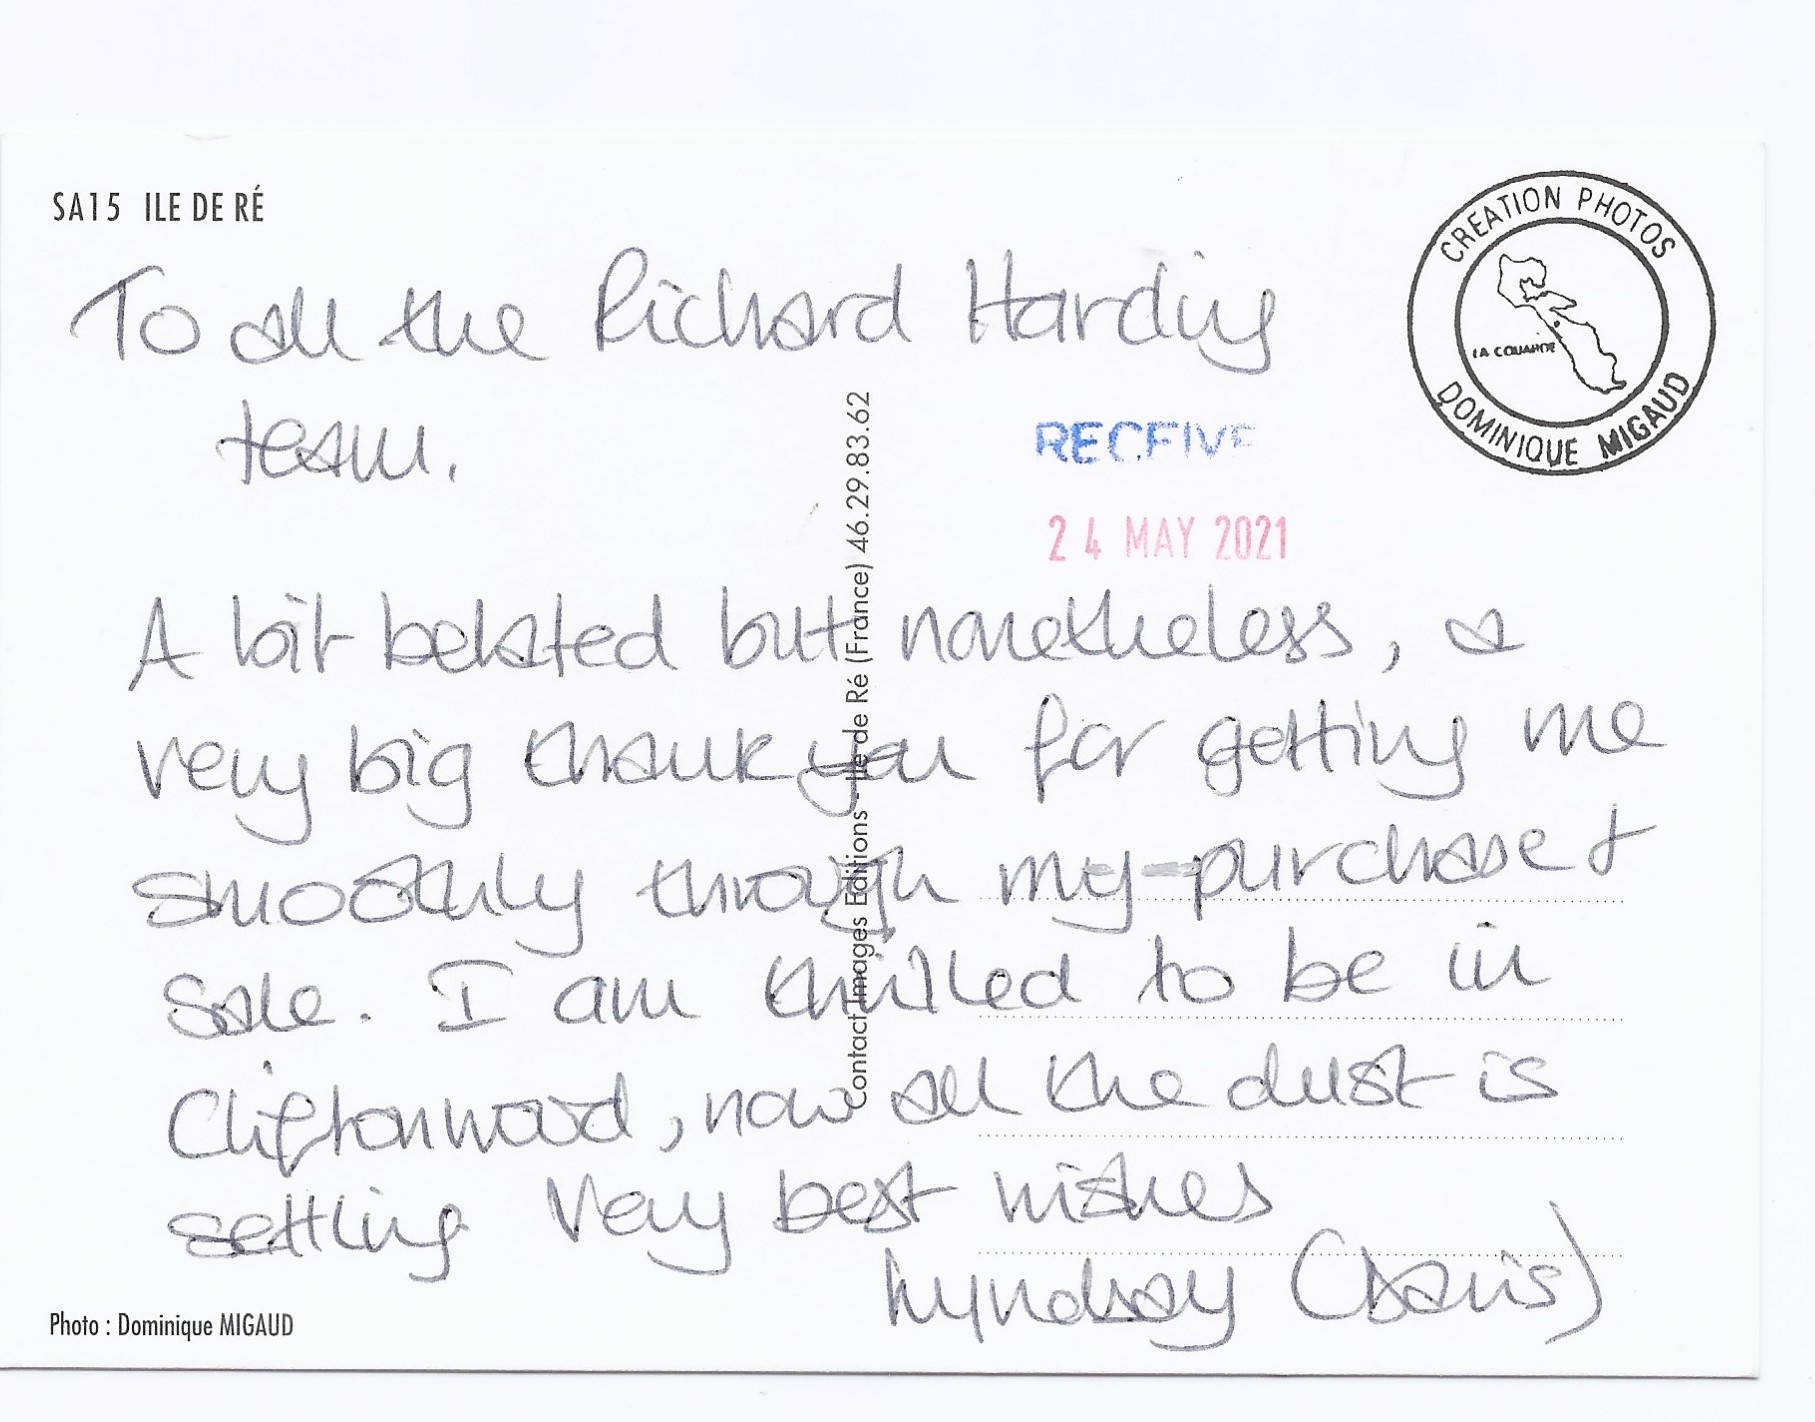 SA15 ILE DE RÉ
CREATION PHOTOS
LA COUARDE
DOMINIQUE MIGAUD
To all the Richard Harding
team.
RECEIVE
24 MAY 2021
A bit belated but nonetheless, a
very big thank you for getting me
smoothly through my purchase &
sale. I am thrilled to be in
Cliftonwood, now all the dust is
settling Very best wishes
Lyndsay (Davis)
Contact Images Editions - Ile de Ré (France) 46.29.83.62
Photo : Dominique MIGAUD